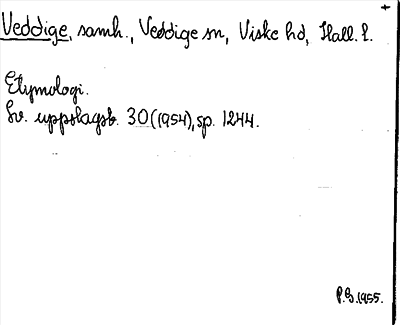 +
Veddige, samh., Veddige sn, Viske hd, Hall. l.
Etymologi.
Sv. uppslagsb. 30 (1954), sp. 1244.
P.G. 1955.